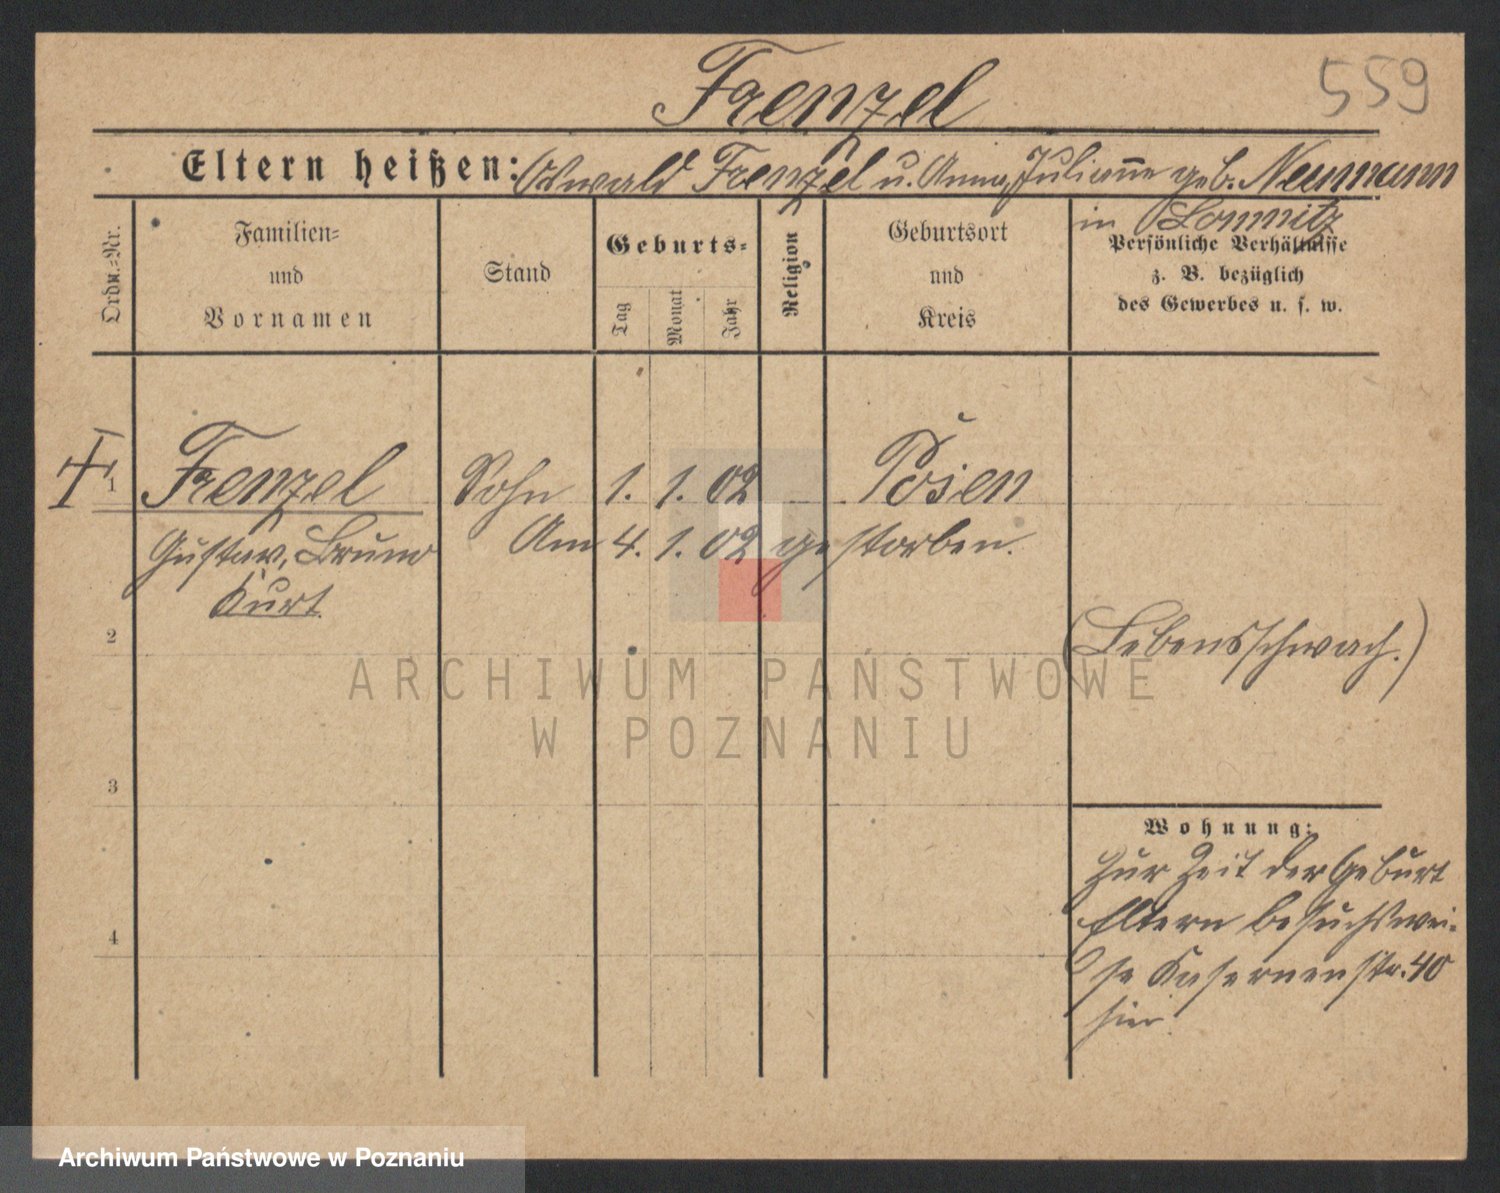 Frenzel
559
Eltern heißen: Oswald Frenzel u. Anna, Julianne geb. Neumann
in Lomnitz
Ordn.-Nr.
Familien-
und
Vornamen
Stand
Geburts-
Tag
Monat
Jahr
Religion
Geburtsort
und
Kreis
Persönliche Verhältnisse
z. B. bezüglich
des Gewerbes u. s. w.
1 Frenzel Sohn 1. 1. 02 Posen
Gustav, Bruno Am 4. 1. 02 gestorben.
Kurt
2
(Lebensschwach.)
ARCHIWUM PAŃSTWOWE
W POZNANIU
3
Wohnung:
Zur Zeit der Geburt
Eltern besuchswei-
se Kasernenstr. 40
hier.
4
Archiwum Państwowe w Poznaniu